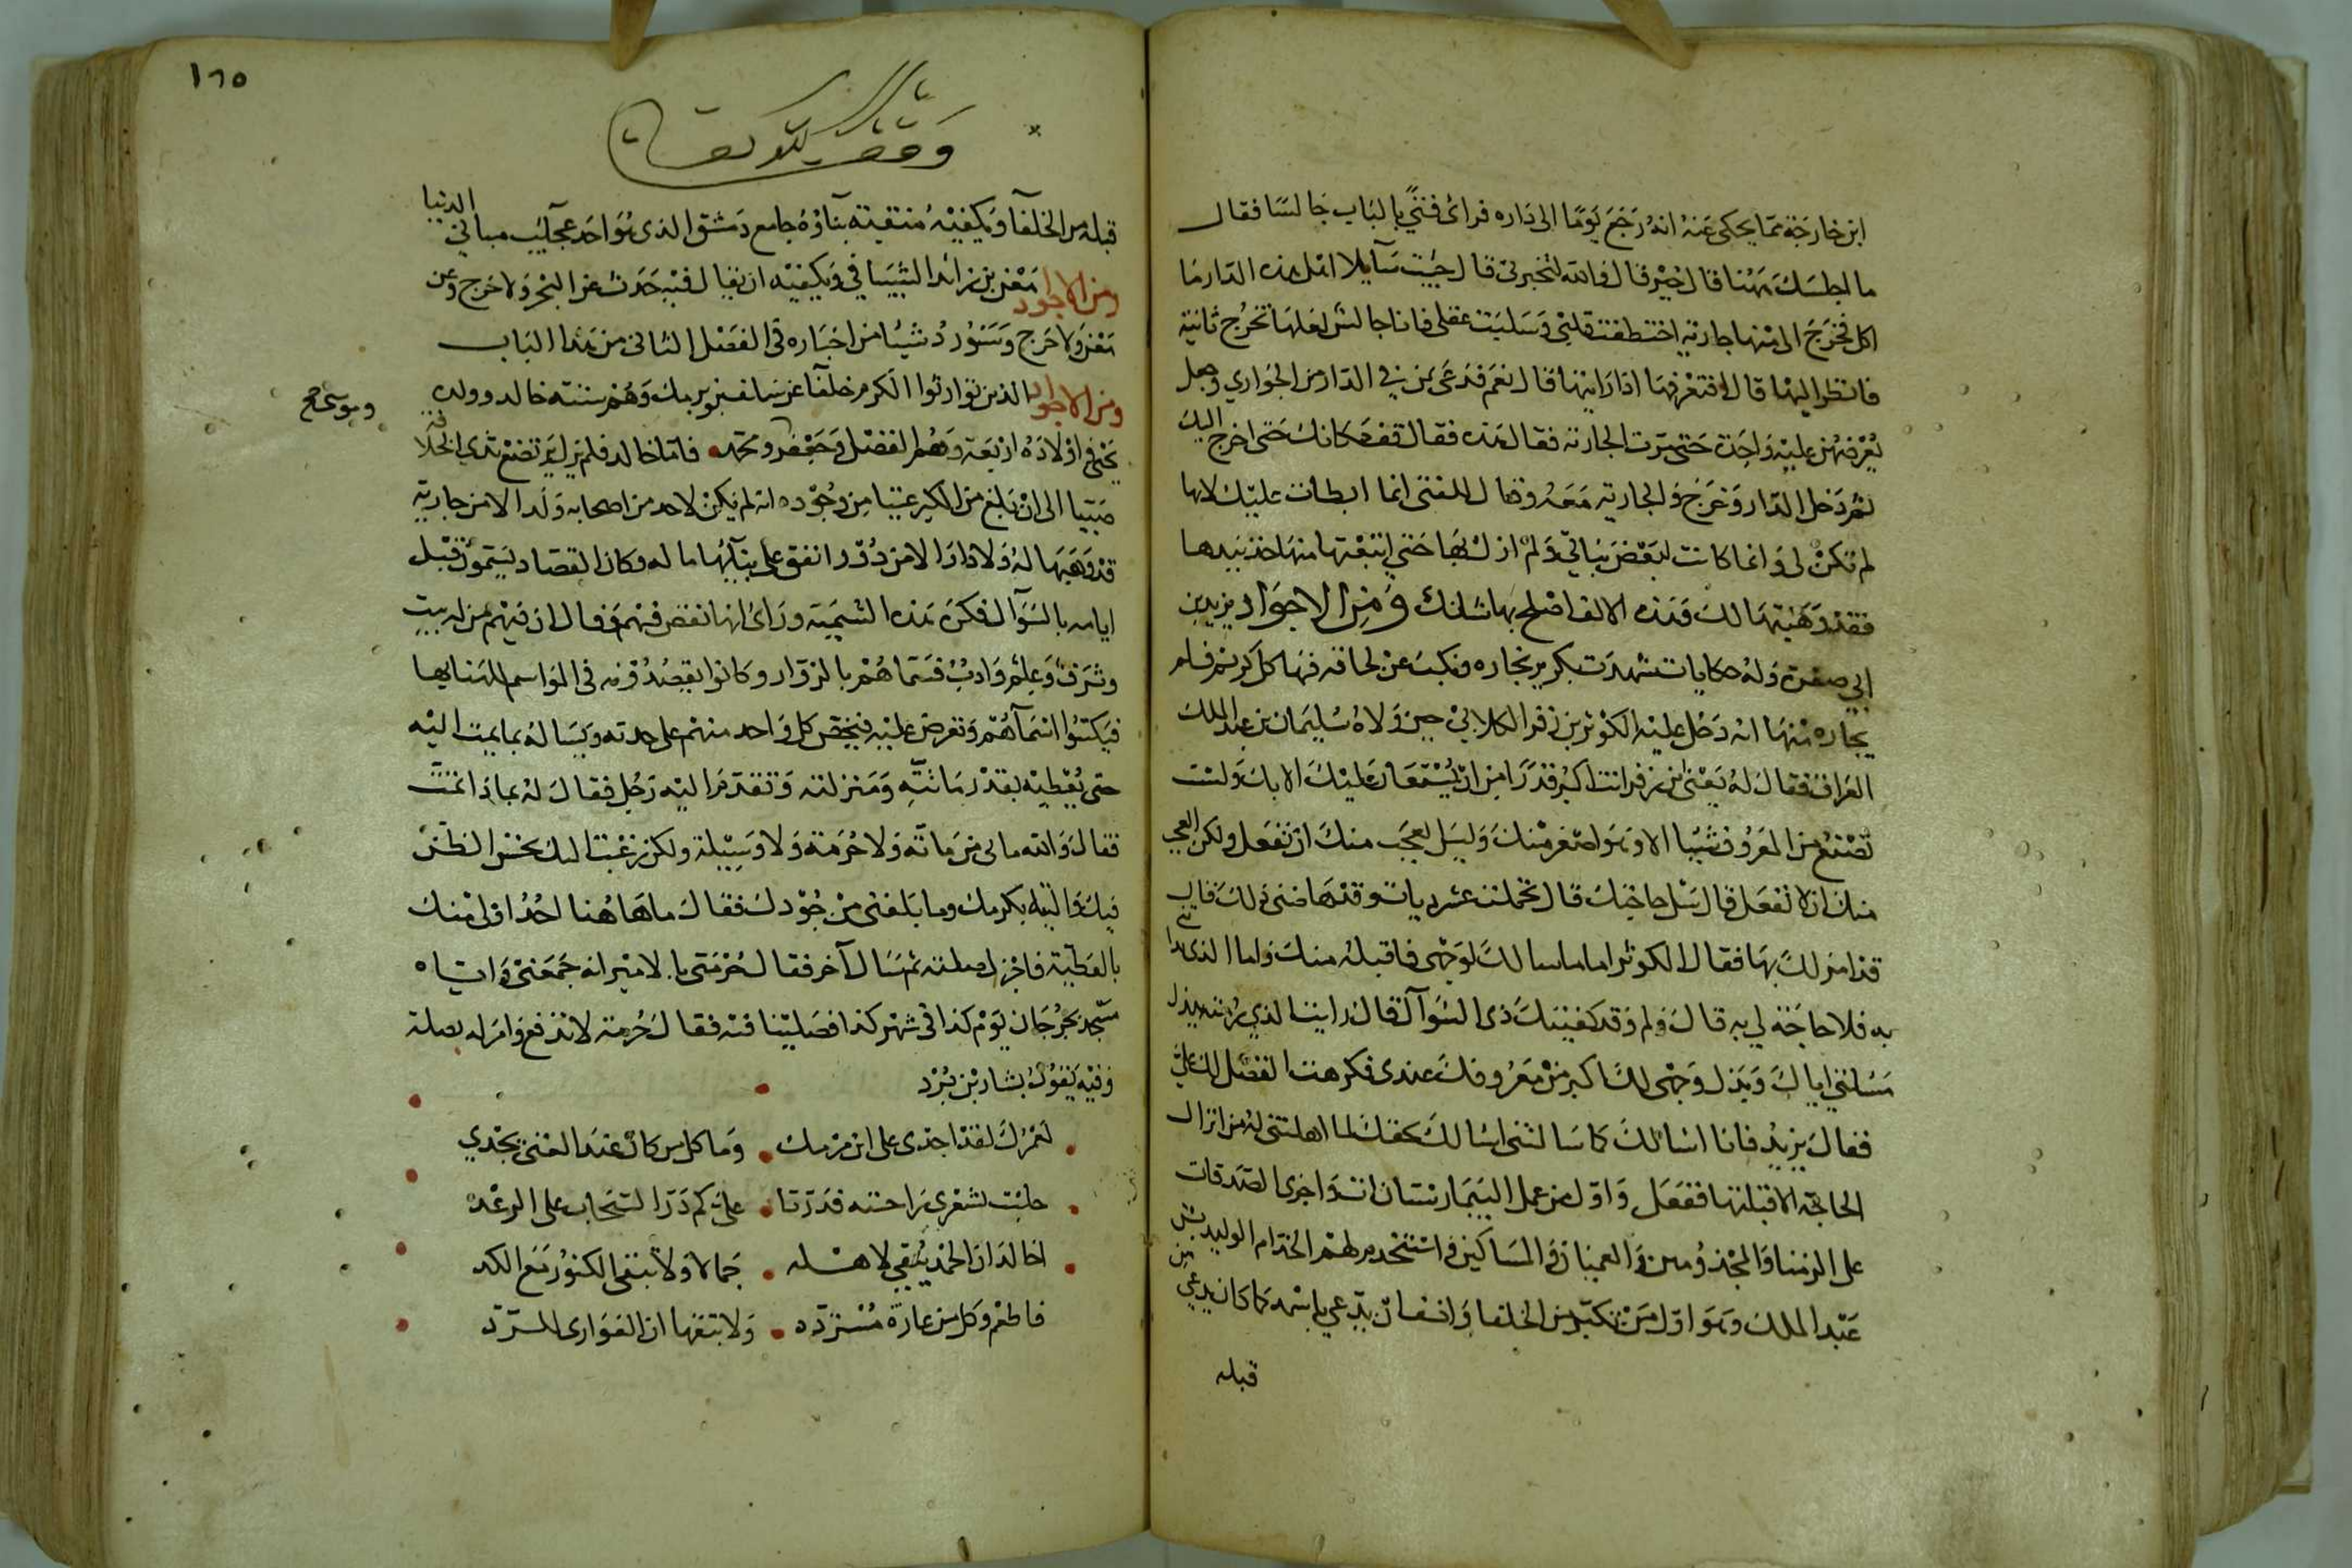 ابن خارجة مما يحكى عنه انه رجع يوما الى داره فرائ فتى بالباب جالسا فقال
ما اجلسك ههنا قال خير قال والله لتخبرنى قال جيت سايلا اهل هذه الدار ما
اكل فخرج الى منها جارية اختطفت قلبى وسلبت عقلى فانا جالس لعلها تخرج ثانية
فانظر اليها قال افتعرفها اذا رايتها قال نعم فدعى بمن فى الدار من الجوارى وجعل
يعرضهن عليه واحدة حتى مرت الجارية فقال هذه فقال قف مكانك حتى اخرج اليك
ثم دخل الدار وخرج والجارية معه وقال للفتى انما ابطات عليك لانها
لم تكن لى وانما كانت لبعض بناتى ولم ازل بها حتى ابتعتها منها خذ بيدها
فقد وهبتها لك وهذه الالف اصلح بها شانك ومن الاجواد يزيد بن
ابى صفرة وله حكايات شهدت بكرم نجاره ونكب عن لحاقه فيها كل كريم فلم
يجاره منها انه دخل عليه الكوثر بن زفر الكلابى حين ولاه سليمان بن عبد الملك
العراق فقال له يعنى ابن زفر انت اكبر قدرا من ان يستعان عليك الا بك ولست
تصنع من المعروف شيئا الا وهو اصغر منك وليس العجب منك ان تفعل ولكن العجب
منك ان لا تفعل قال سل حاجتك قال تحملت عشر ديات وقد هاضنى ذلك قال
قد امرت لك بها فقال الكوثر اما ما سالك لوجهى فاقبله منك واما الذى بدا
به فلا حاجة لى به قال ولم وقد كفيتك ذل السوال قال رايت الذى رزئته ببذل
مسئلتى اياك وبذل وجهى لك اكبر من معروفك عندى فكرهت الفضل لك على
فقال يزيد فانا اسالك كما سالتنى اسالك بحقك لما اهلتنى له من انزال
الحاجة الا قبلتها ففعل واول من عمل البيمارستان واجرى الصدقات
على الزمنا والمجذومين والعميان والمساكين واستخدم لهم الخدام الوليد بن
عبد الملك وهو اول من تكبر من الخلفا وانف ان يدعى باسمه كما كان يدعى من
قبله
١٦٥
وقف لله تعالى
قبله من الخلفا ويكفيه منقبته بناؤه جامع دمشق الذى هو احد عجايب مبانى الدنيا
ومن الاجواد معن بن زائدا الشيبانى ويكفيه ان يقال فيه حدث عن البحر ولا حرج وعن
معن ولا حرج وسنورد شيئا من اخباره فى الفصل الثانى من هذا الباب
ومن الاجواد الذين توارثوا الكرم خلفا عن سلف بنو برمك وهم ستة خالد وولده
يحيى واولاده اربعة وهم الفضل وجعفر ومحمد فاما خالد فلم يزل يرتضع ثدى الخلافة
وموسى صح
صبيا الى ان بلغ من الكبر عتيا من وجوده انه لم يكن لاحد من اصحابه ولدا الا من جارية
قد وهبها له ولا دارا الا من دوره وانفق على بنائها ماله وكان القصاد يسمون قبل
ايامه بالسوال فكره هذه التسمية وراى انها نقص فيهم وقال ان فيهم من له بيت
وشرف وعلم وادب فسماهم بالزوار وكانوا يقصدونه فى المواسم للهنا بها
فيكتبوا اسماهم وتعرض عليه فيخص كل واحد منهم على حدته ويساله بما يمت اليه
حتى يعطيه بقدر ماتته ومنزلته وتقدم اليه رجل فقال له بماذا تمت
فقال والله مالى من ماتة ولا حرمة ولا وسيلة ولكن رغبت اليك بحسن الظن
فيك والتيه بكرمك وما بلغنى من جودك فقال ما هاهنا احد اولى منك
بالعطية فاجزل صلته ثم سال آخر فقال حرمتى يا الامير انه جمعنى واياه
مسجد بجرجان يوم كذا فى شهر كذا فصلينا فيه فقال حرمة لا تدفع وامر له بصلة
وفيه يقول بشار بن برد
لعمرك لقد اجدى على ابن برمك وما كل من كان عنده الغنى يجدي
حلبت لشعرى راحتيه فدرتا على كم در السحاب على الرعد
اخالد ان الحمد يبقى لاهله جمالا ولا تبقى الكنوز مع الكد
فاطعم وكل من عارة مستردة ولا تبقها ان العوارى للرد